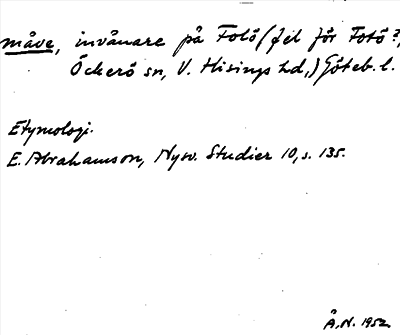 måve, invånare på Folö (fel för Fotö?,
Öckerö sn, V. Hisings hd,) Göteb. l.
Etymologi.
E. Abrahamson, Nysv. Studier 10, s. 135.
Å.N. 1952